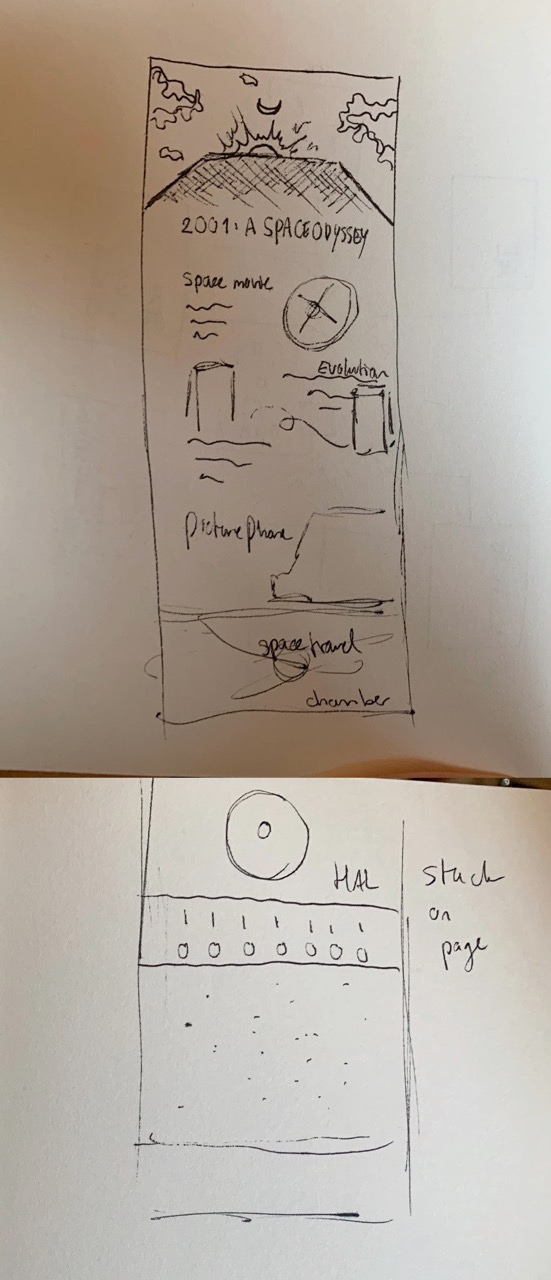 2001: A SPACE ODYSSEY
Space movie
Evolution
Picture Phone
space travel
chamber
HAL
stuck
on
page